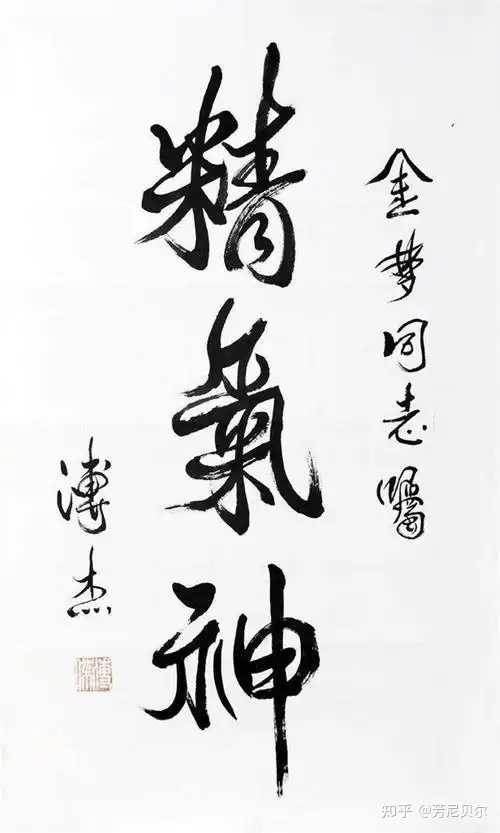 金梦同志嘱
精氣神
溥杰
知乎 @芳尼贝尔